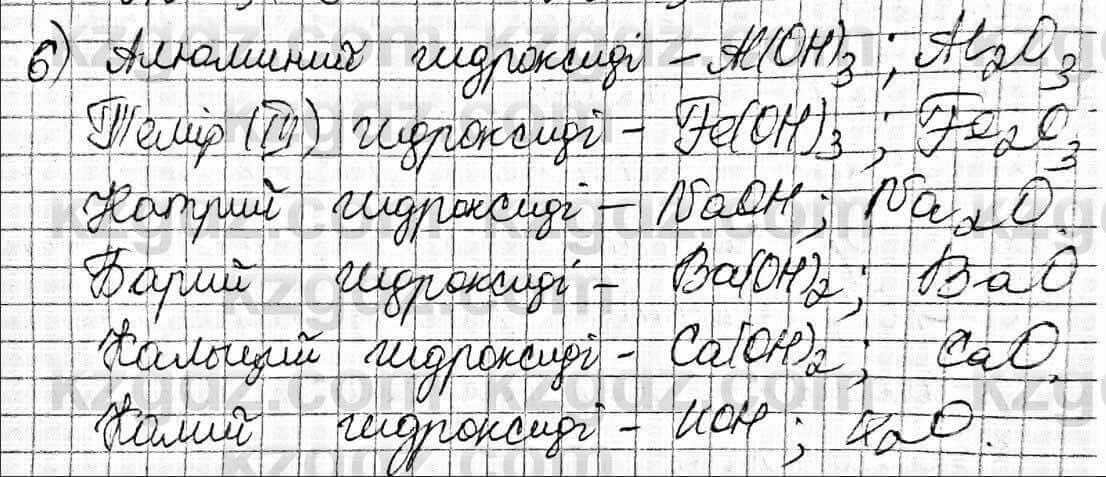 6) Алюминий гидроксиді - Al(OH)₃ ; Al₂O₃
Темір (III) гидроксиді - Fe(OH)₃ ; Fe₂O₃
Натрий гидроксиді - NaOH ; Na₂O.
Барий гидроксиді - Ba(OH)₂ ; BaO
Кальций гидроксиді - Ca(OH)₂ ; CaO.
Калий гидроксиді - KOH ; K₂O.